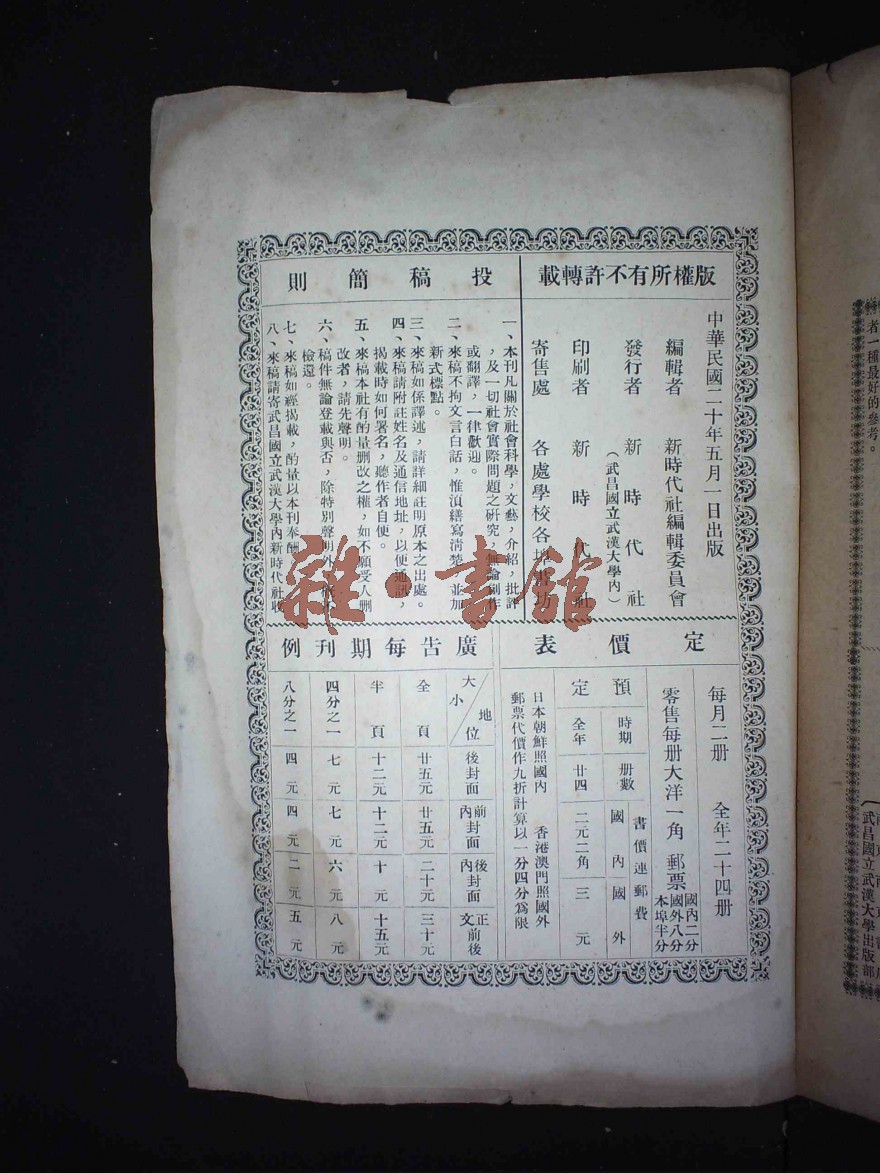 版權所有不許轉載
中華民國二十年五月一日出版
編輯者 新時代社編輯委員會
發行者 新時代社
（武昌國立武漢大學內）
印刷者 新時代社
寄售處 各處學校各地書坊
投稿簡則
一、本刊凡關於社會科學，文藝，介紹，批評
，及一切社會實際問題之研究，無論創作
或翻譯，一律歡迎。
二、來稿不拘文言白話，惟湏繕寫清楚，並加
新式標點。
三、來稿如係譯述，請詳細註明原本之出處。
四、來稿請附註姓名及通信地址，以便通訊，
揭載時如何署名，聽作者自便。
五、來稿本社有酌量刪改之權，如不願受人刪
改者，請先聲明。
六、稿件無論登載與否，除特別聲明外，
檢還。
七、來稿如經揭載，酌量以本刊奉酬
八、來稿請寄武昌國立武漢大學內新時代社收
定價表
每月二册 全年二十四册
零售每册大洋一角 郵票 國內二分 國外八分 本埠半分
預定
時期 册數 書價連郵費 國內 國外
全年 廿四 二元二角 三元
日本朝鮮照國內 香港澳門照國外
郵票代價作九折計算以一分四分爲限
廣告每期刊例
地位 大小 後封面 前內封面 後內封面 正文前後
全頁 廿五元 廿五元 二十元 三十元
半頁 十二元 十二元 十元 十五元
四分之一 七元 七元 六元 八元
八分之一 四元 四元 二元 五元
雜·書館
者一種最好的參考。
武昌國立武漢大學出版部